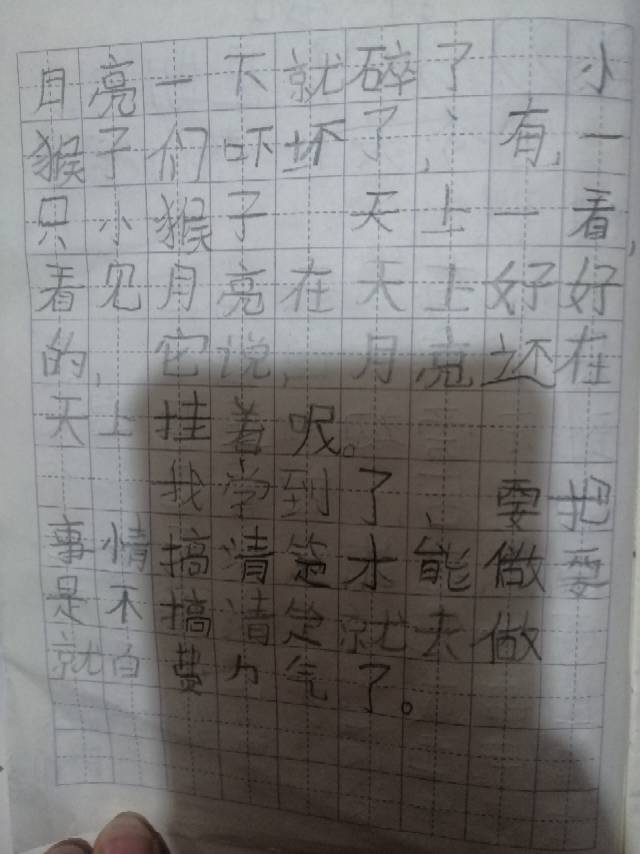 月亮一下就碎了 小
猴子们吓坏了,有,一
只小猴子 天上一看,
看见月亮在天上好好
的,它说,月亮还在
天上挂着呢。
我学到了、要把
事情搞清楚才能做要
是不搞清楚就去做
就白费力气了。